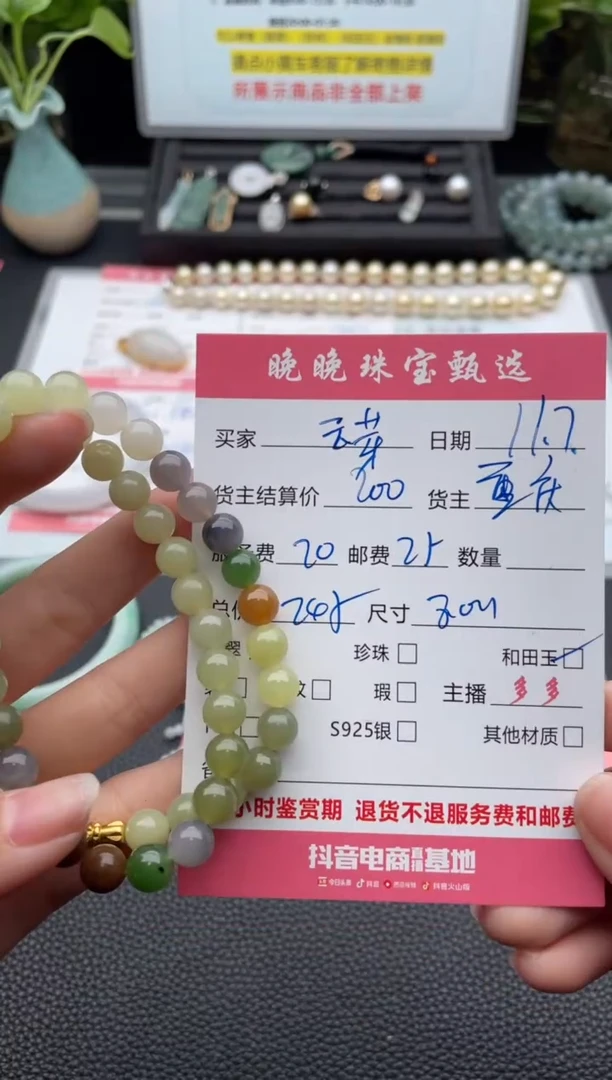 请点小黄车客服了解规则详情
所展示商品非全部上架
晚晚珠宝甄选
买家 云芽 日期 11.7
货主结算价 200 货主 重庆
服务费 20 邮费 25 数量
总价 245 尺寸
珍珠 和田玉
瑕 主播 多多
S925银 其他材质
小时鉴赏期 退货不退服务费和邮费
抖音电商直播基地
今日头条 抖音 西瓜视频 抖音火山版